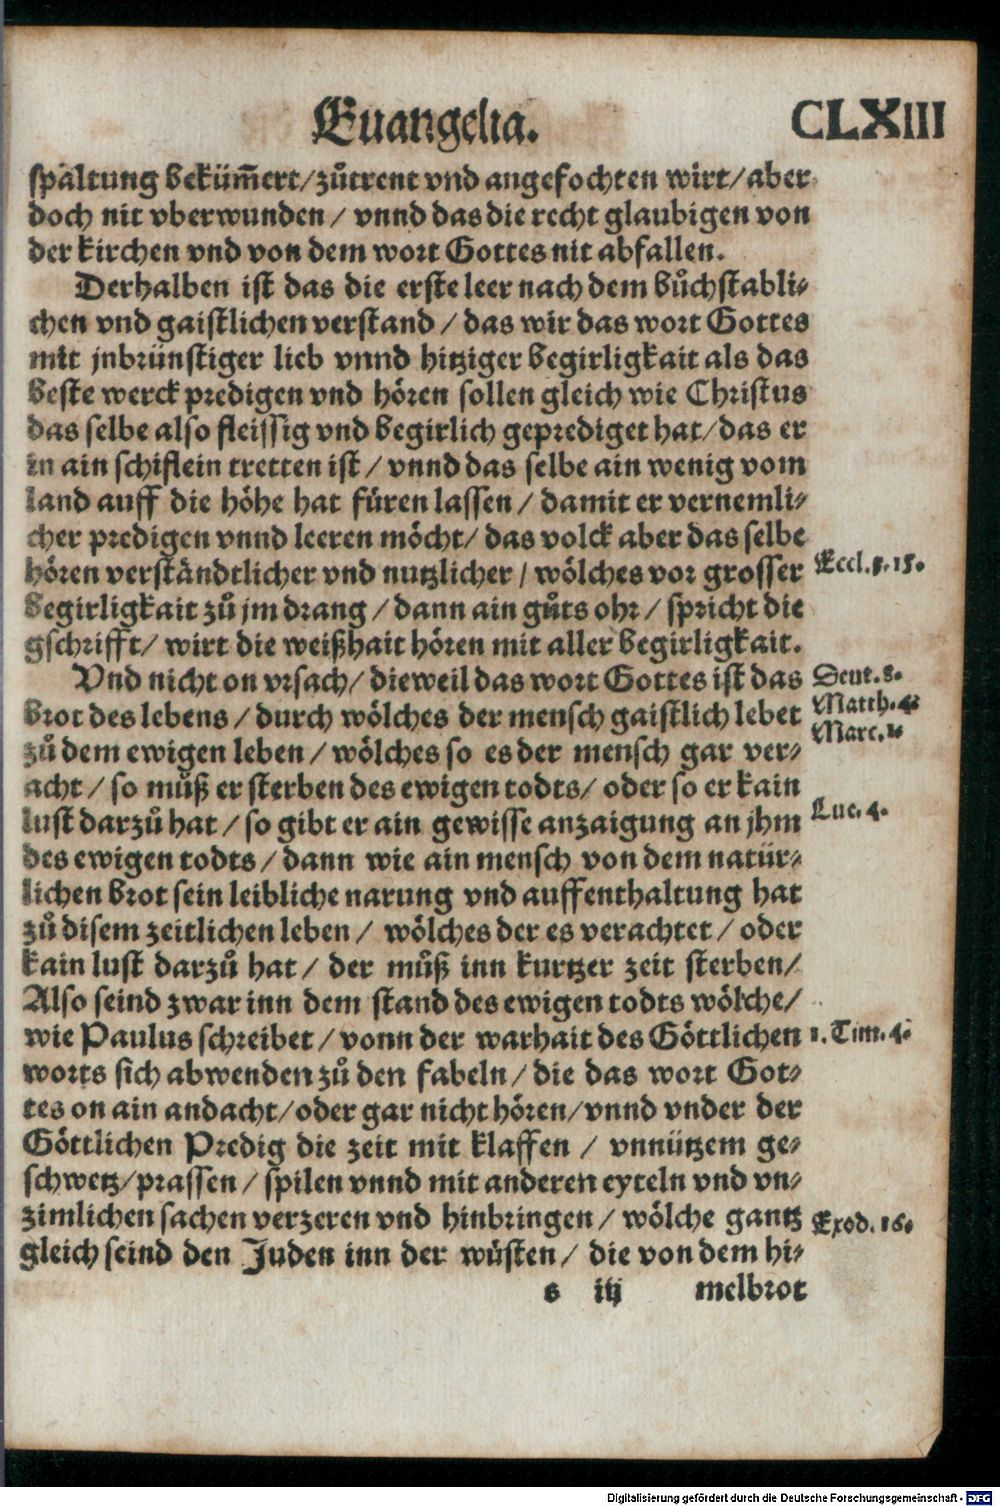 Euangelia. CLXIII
spåltung beküm̃ert/zůtrent vnd angefochten wirt/aber
doch nit vberwunden/ vnnd das die recht glaubigen von
der kirchen vnd von dem wort Gottes nit abfallen.
Derhalben ist das die erste leer nach dem bůchstabli-
chen vnd gaistlichen verstand/ das wir das wort Gottes
mit jnbrünstiger lieb vnnd hitziger begirligkait als das
beste werck predigen vnd hören sollen gleich wie Christus
das selbe also fleissig vnd begirlich geprediget hat/das er
in ain schiflein tretten ist/ vnnd das selbe ain wenig vom
land auff die höhe hat füren lassen/ damit er vernemli-
cher predigen vnnd leeren möcht/ das volck aber das selbe
hören verståndtlicher vnd nutzlicher/ wölches vor grosser
Eccl.5.15.
begirligkait zů jm drang/ dann ain gůts ohr/ spricht die
gschrifft/ wirt die weißhait hören mit aller begirligkait.
Vnd nicht on vrsach/ dieweil das wort Gottes ist das
Deut.8.
brot des lebens/ durch wölches der mensch gaistlich lebet
Matth.4.
zů dem ewigen leben/ wölches so es der mensch gar ver-
Marc.1.
acht/ so můß er sterben des ewigen todts/ oder so er kain
lust darzů hat/ so gibt er ain gewisse anzaigung an jhm
Luc.4.
des ewigen todts/ dann wie ain mensch von dem natür-
lichen brot sein leibliche narung vnd auffenthaltung hat
zů disem zeitlichen leben/ wölches der es verachtet/ oder
kain lust darzů hat/ der můß inn kurtzer zeit sterben/
Also seind zwar inn dem stand des ewigen todts wölche/
wie Paulus schreibet/ vonn der warhait des Göttlichen
1.Tim.4.
worts sich abwenden zů den fabeln/ die das wort Got-
tes on ain andacht/oder gar nicht hören/vnnd vnder der
Göttlichen Predig die zeit mit klaffen/ vnnützem ge-
schwetz/prassen/ spilen vnnd mit anderen eyteln vnd vn-
zimlichen sachen verzeren vnd hinbringen/ wölche gantz
Exod.16.
gleich seind den Juden inn der wüsten/ die von dem hi-
s iij melbrot
Digitalisierung gefördert durch die Deutsche Forschungsgemeinschaft - DFG